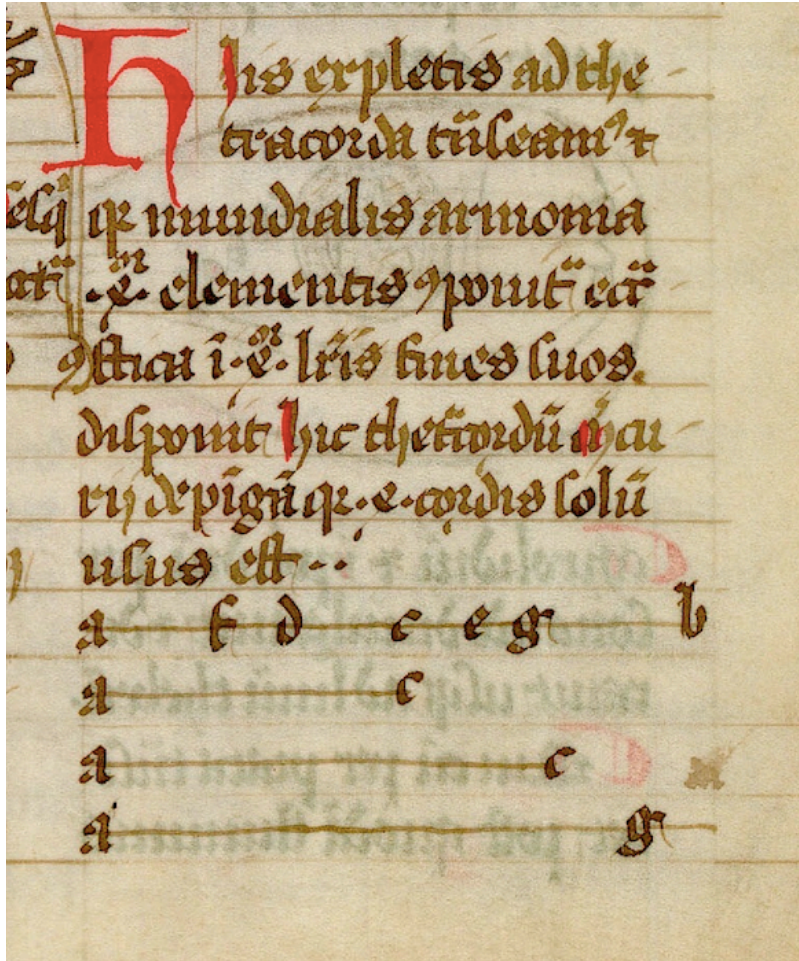 H his expletis ad the
tracorda tͣ̄seamꝰ ⁊
qꝛ mundialis armonia
.xͫ. elementis ꝯponit᷑
ꝯstica ī lr̄is fines suos
disponit hic thetᷓcordū m̄cu
rij depīgā qꝛ .e. cordis solū
usus est ··
a f d c e g b
a c
a c
a g